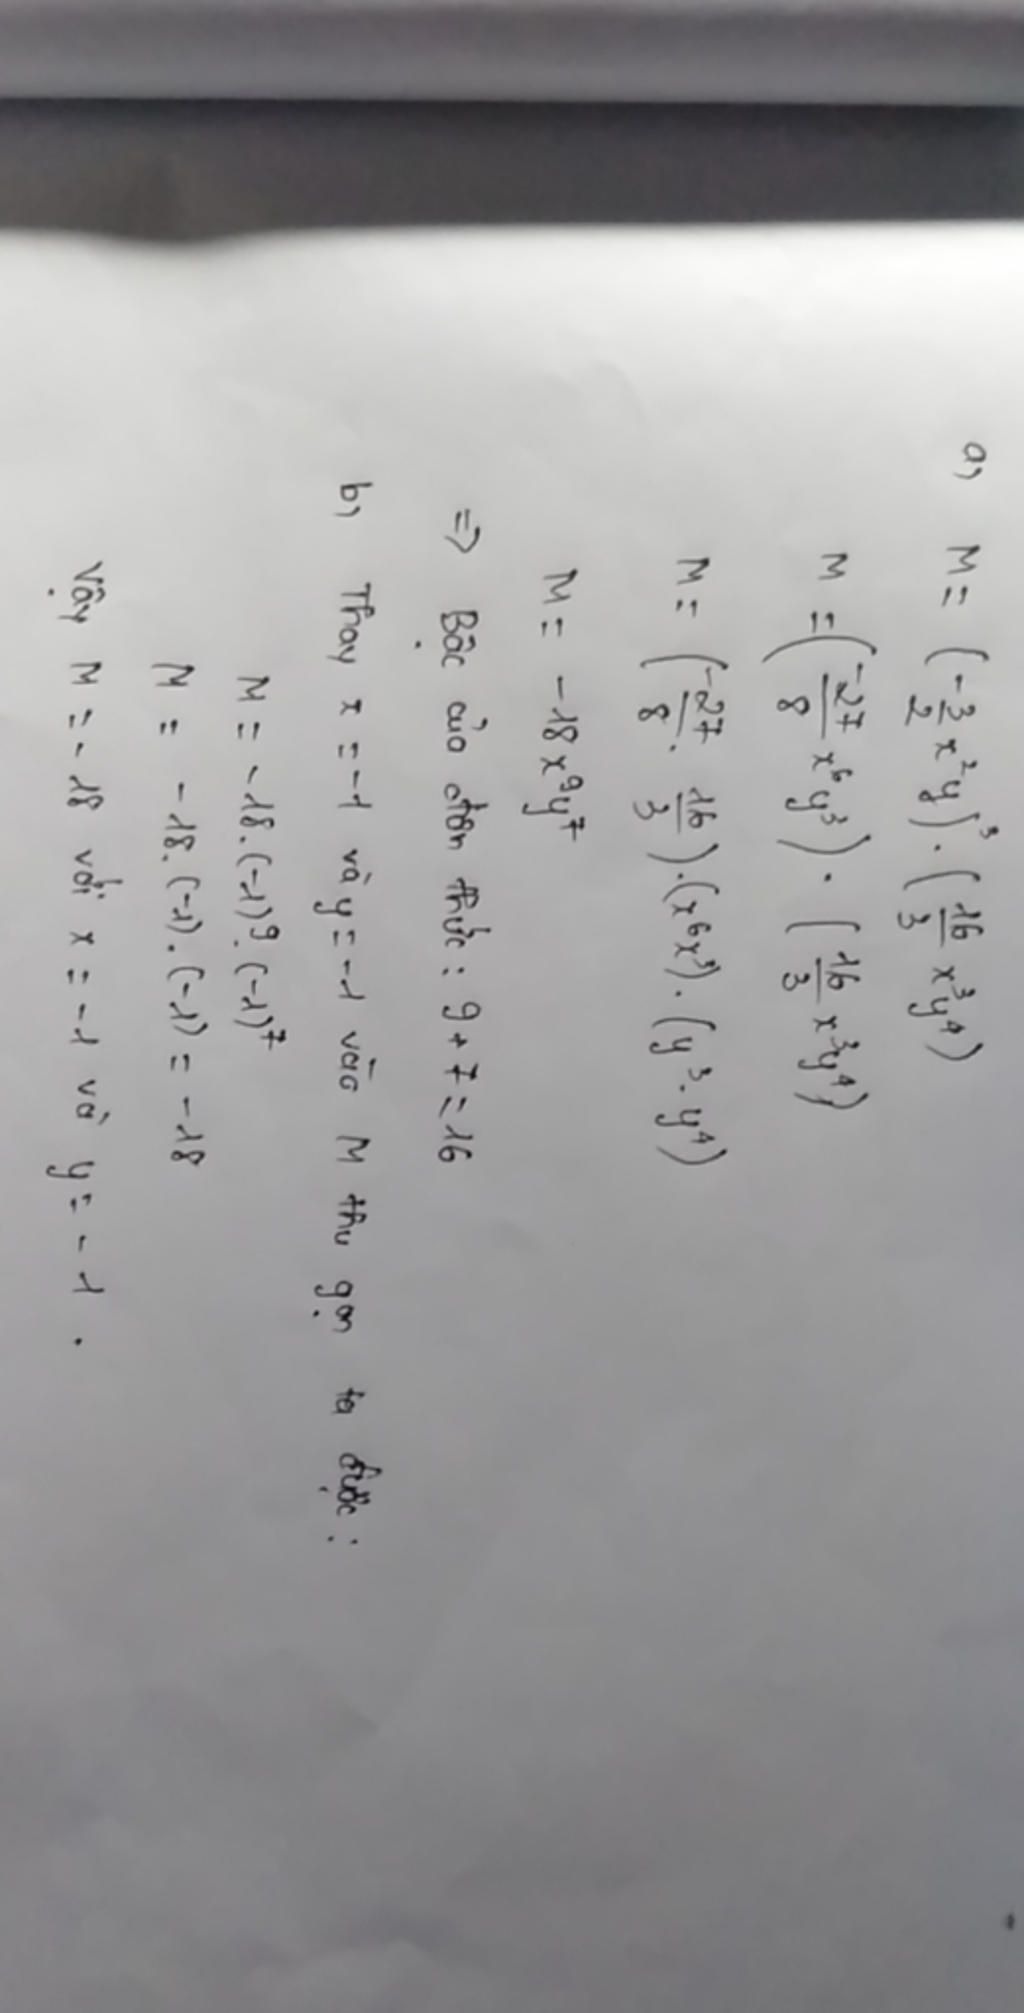 a) M = (-3/2 x²y)³ . (16/3 x³y⁴)
M = (-27/8 x⁶y³) . (16/3 x³y⁴)
M = (-27/8 . 16/3) . (x⁶x³) . (y³ . y⁴)
M = -18x⁹y⁷
=> Bậc của đơn thức : 9 + 7 = 16
b) Thay x = -1 và y = -1 vào M thu gọn ta được :
M = -18 . (-1)⁹ . (-1)⁷
M = -18 . (-1) . (-1) = -18
Vậy M = -18 với x = -1 và y = -1 .